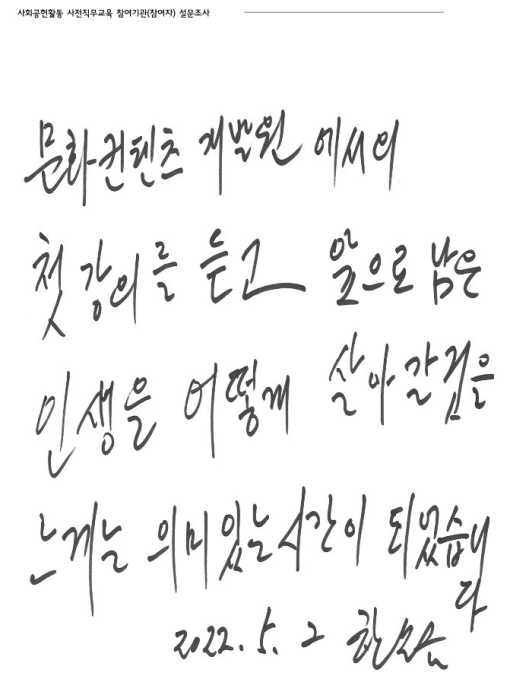 사회공헌활동 사전직무교육 참여기관(참여자) 설문조사
문화컨텐츠 개발원 에서의
첫 강의를 듣고 앞으로 남은
인생을 어떻게 살아갈 검을
느계는 의미있는 시간이 되었습니
다
2022. 5. 2